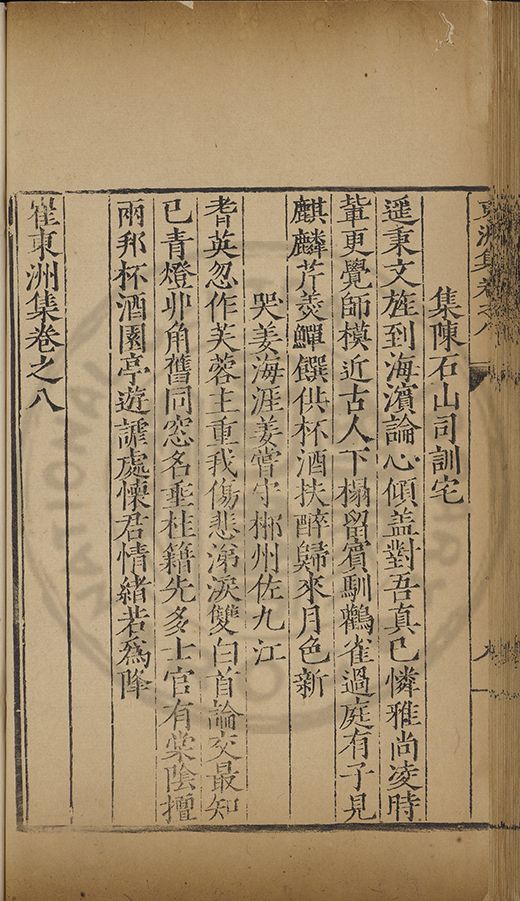 東洲集卷之八
九
集陳石山司訓宅
遥秉文旌到海濵論心傾盖對吾真已憐雅尚凌時
軰更覺師模近古人下榻留賓馴鸛雀過庭有子見
麒麟芹羮鱓饌供杯酒扶醉歸來月色新
哭姜海涯姜嘗守郴州佐九江
耆英忽作芙蓉主重我傷悲涕淚雙白首論交最知
已青燈丱角舊同窓名乖桂籍先多士官有棠陰擅
兩邦杯酒園亭遊謔處懐君情緒若爲降
崔東洲集卷之八